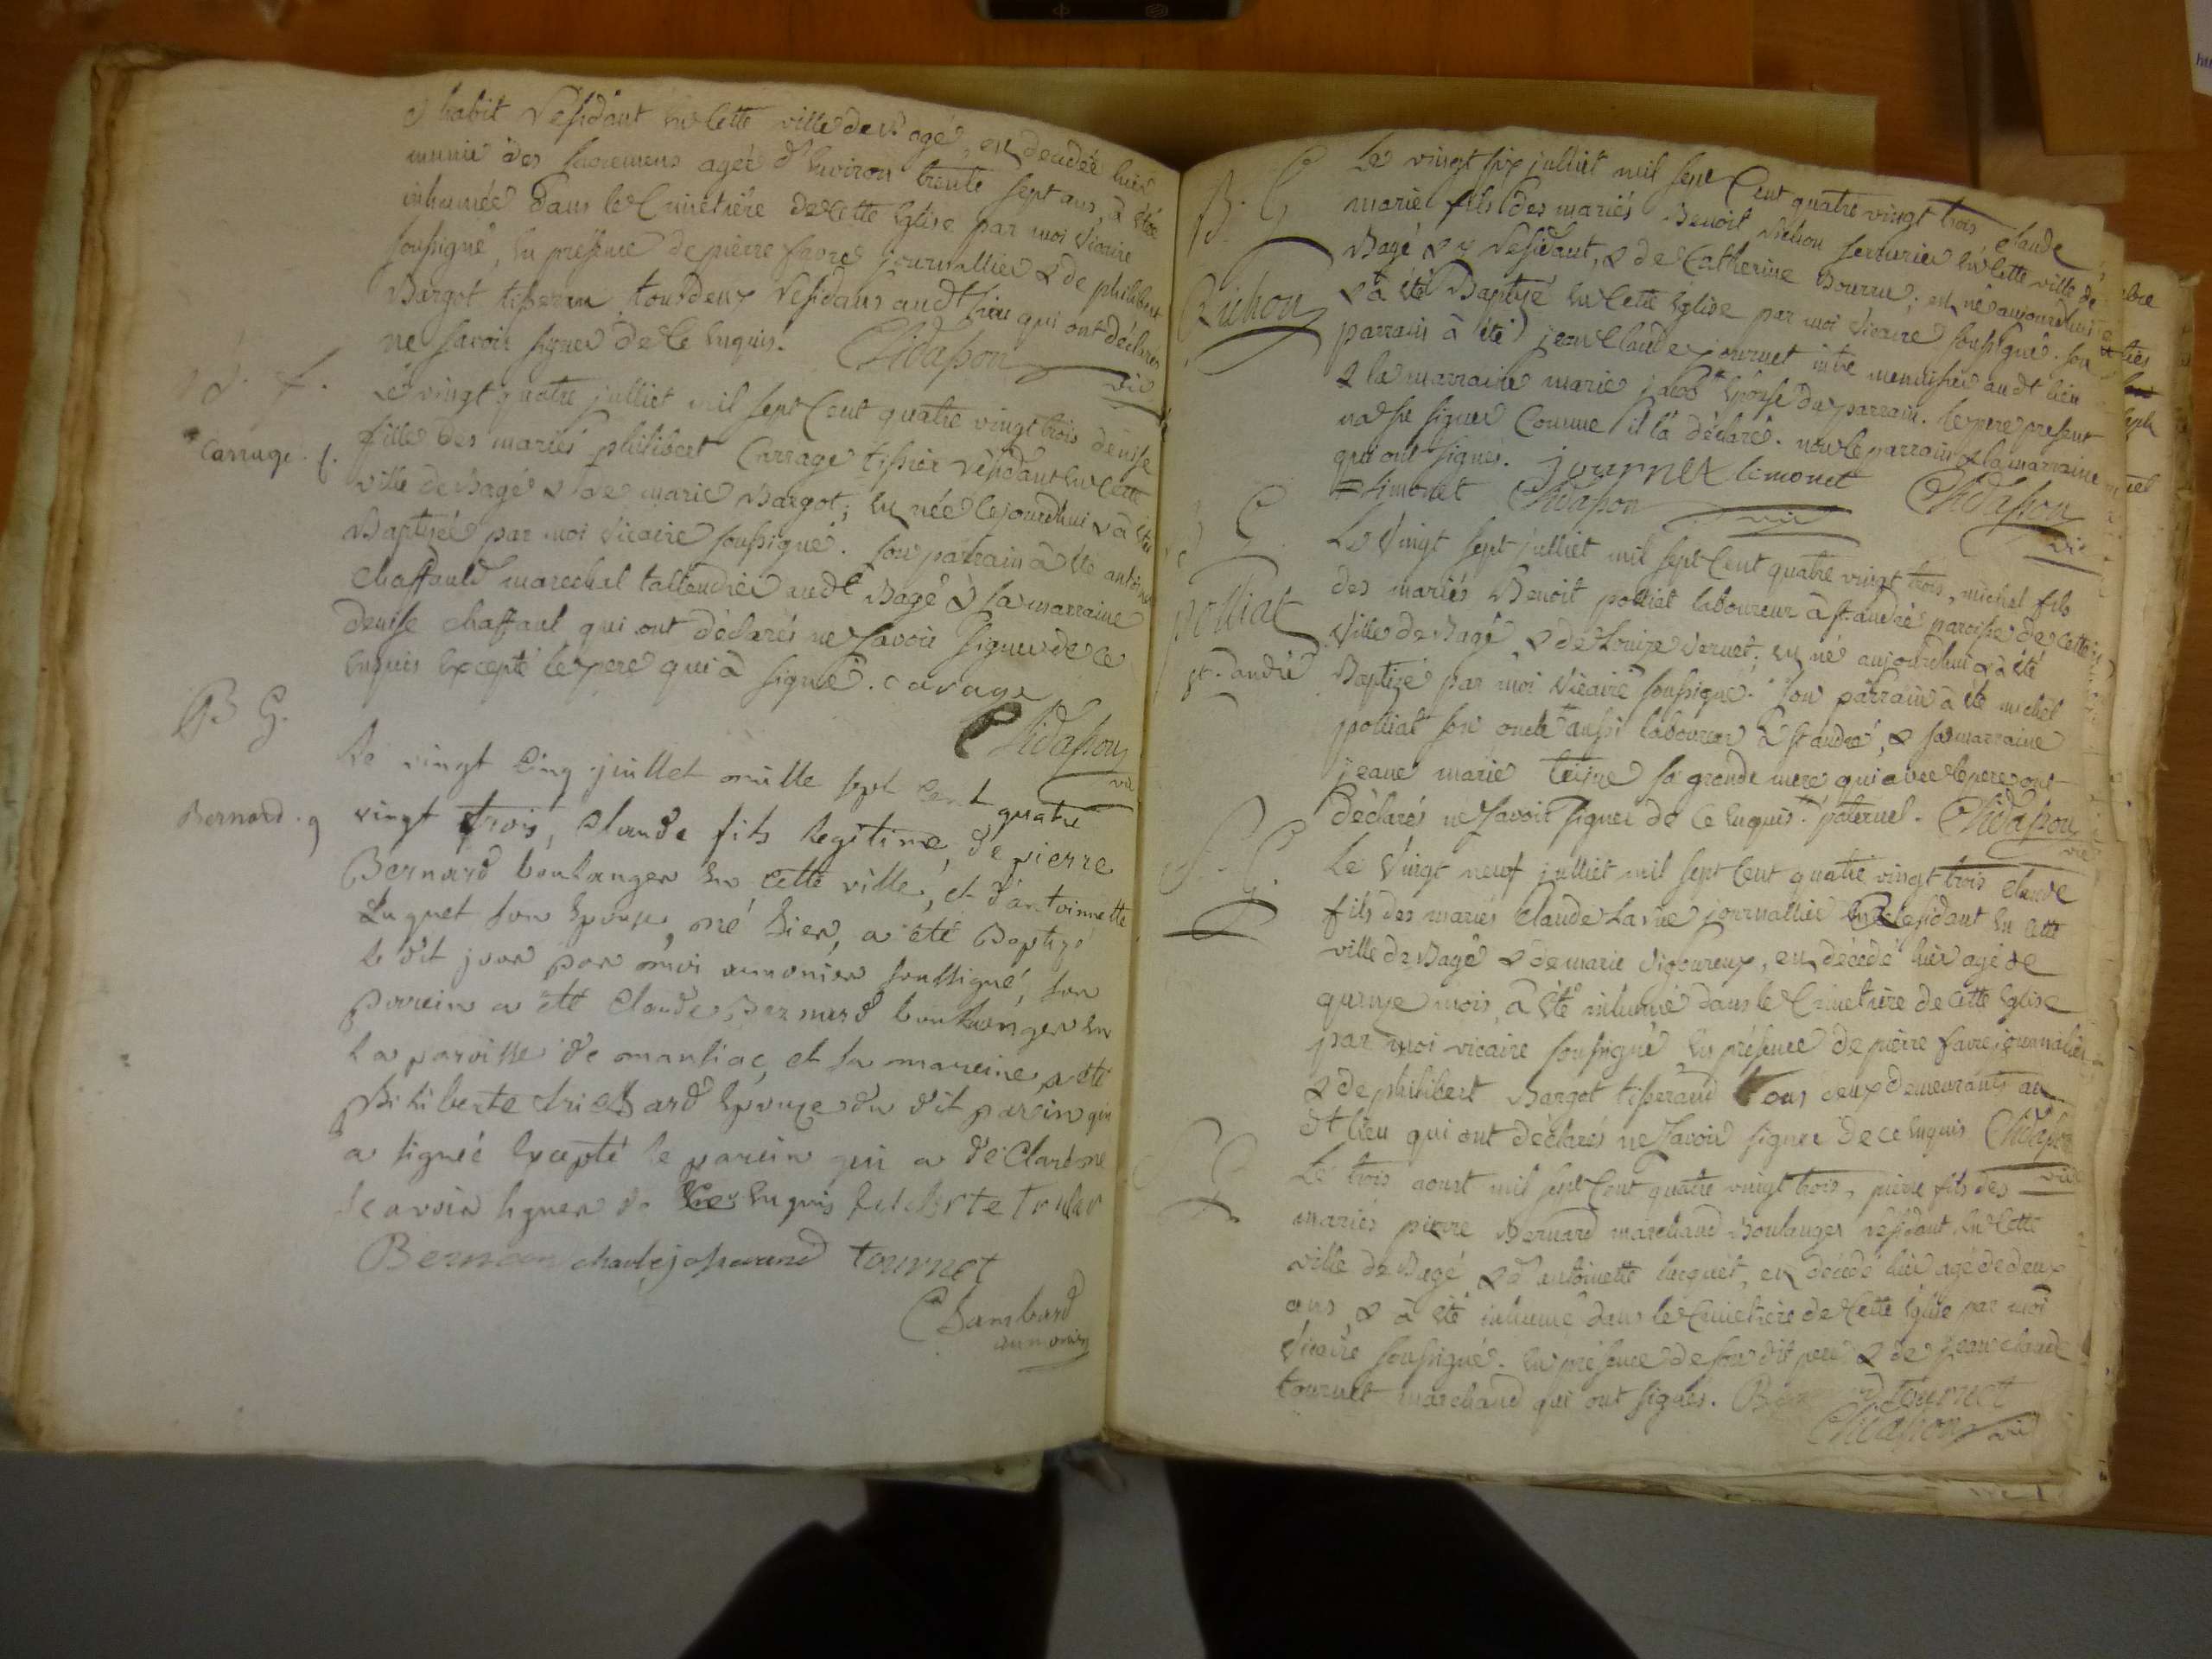 habit résidant en cette ville de Bagé, est décédée hier
munie des sacremens agée d'environ trente sept ans, à été
inhumée dans le Cimetière de cette Eglise par moi vicaire
soussigné, en présence de pierre favre journallier & de philibert
Bargot tisseran tousdeux résidans audt lieu qui ont déclarés
ne savoir signer de ce enquis. Chidasson
vic
Le vingt quatre julliet mil sept Cent quatre vingt trois denise
Carrage. f.
fille des mariés philibert Carrage tissier résidant en cette
ville de Bagé & de marie Bargot; est née cejourdhui & à été
Baptisée par moi vicaire soussigné. son parrain à été
chaffauld marechal taillendier audt Bagé & sa marraine
denise chaffaut qui ont déclarés ne savoir signer de ce
enquis excepté le pere qui à signé. carage
Chidasson
vic
B G.
Le vingt cinq juillet mille sept cent quatre
Bernard. g
vingt trois, claude fils legitime, de pierre
Bernard boulanger en cette ville, et d'antoinette
Luquet son epouse, né hier, a été Baptizé
le dit jour par moi aumonier soussigné, son
parein a été Claude Bernard boulanger en
la paroisse de manliac, et sa mareine a été
philiberte trichard epouze du dit parin qui
a signée excepté le parein qui a déclaré ne
scavoir signer de ce enquis
Bernard tournet
Chambard
aumonier
B. G
Le vingt six julliet mil sept Cent quatre vingt trois claude
marie fils des mariés Benoit Richon serrurier en cette ville de
Richon
Bagé & y résidant, & de Catherine Bourru; est né aujourdhui
& à été Baptisé en cette Eglise par moi vicaire soussigné. son
parrain à été jean Claude journet mtre menuisier audt lieu
& la marraine marie jacob epouse du parrain. le pere present
na su signer comme il l'a déclaré. non le parrain & la marraine
qui ont signés. journet limonet
= limonet Chidasson Chidasson
vic
vic
G
Le Vingt sept julliet mil sept Cent quatre vingt trois, michel fils
polliat
des mariés Benoit polliat laboureur à st andré paroisse de cette
st. andré
ville de Bagé & de Louize vernet; est né aujourdhui & à été
Baptizé par moi vicaire soussigné. son parrain à été michel
polliat son oncle aussi laboureur à st andré, & sa marraine
jeane marie sa grande mere qui avec le pere ont
déclarés ne savoir signer de ce enquis. paternel. Chidasson
vic
S. G.
Le Vingt neuf julliet mil sept Cent quatre vingt trois claude
fils des mariés Claude Larue journallier résidant en cette
ville de Bagé & de marie vigoureux, est décédé hier agé de
quinze mois, à été inhumé dans le Cimetière de cette Eglise
par moi vicaire soussigné en présence de pierre favre journalier
& de philibert Bargot tisserand tous deux demeurants au
dt lieu qui ont déclarés ne savoir signer de ce enquis Chidasson
vic
Le trois aoust mil sept Cent quatre vingt trois, pierre fils des
mariés pierre Bernard marchand Boulanger résidant en cette
ville de Bagé, & d'antoinette luquet, est décédé hier agé de deux
ans, & à été inhumé dans le Cimetière de cette Eglise par moi
vicaire soussigné. en présence de son dit pere & de jean claude
tournet marchand qui ont signés. Bernard tournet
Chidasson vic